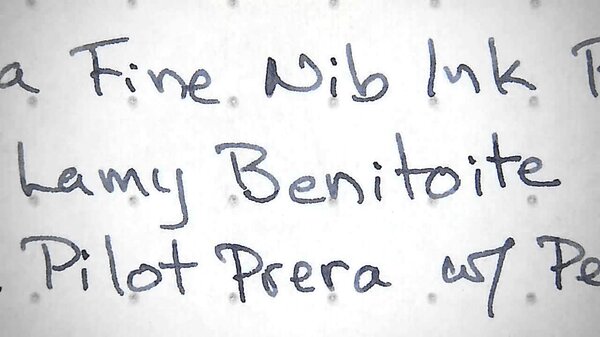 a Fine Nib Ink
Lamy Benitoite
Pilot Prera w/ Pe